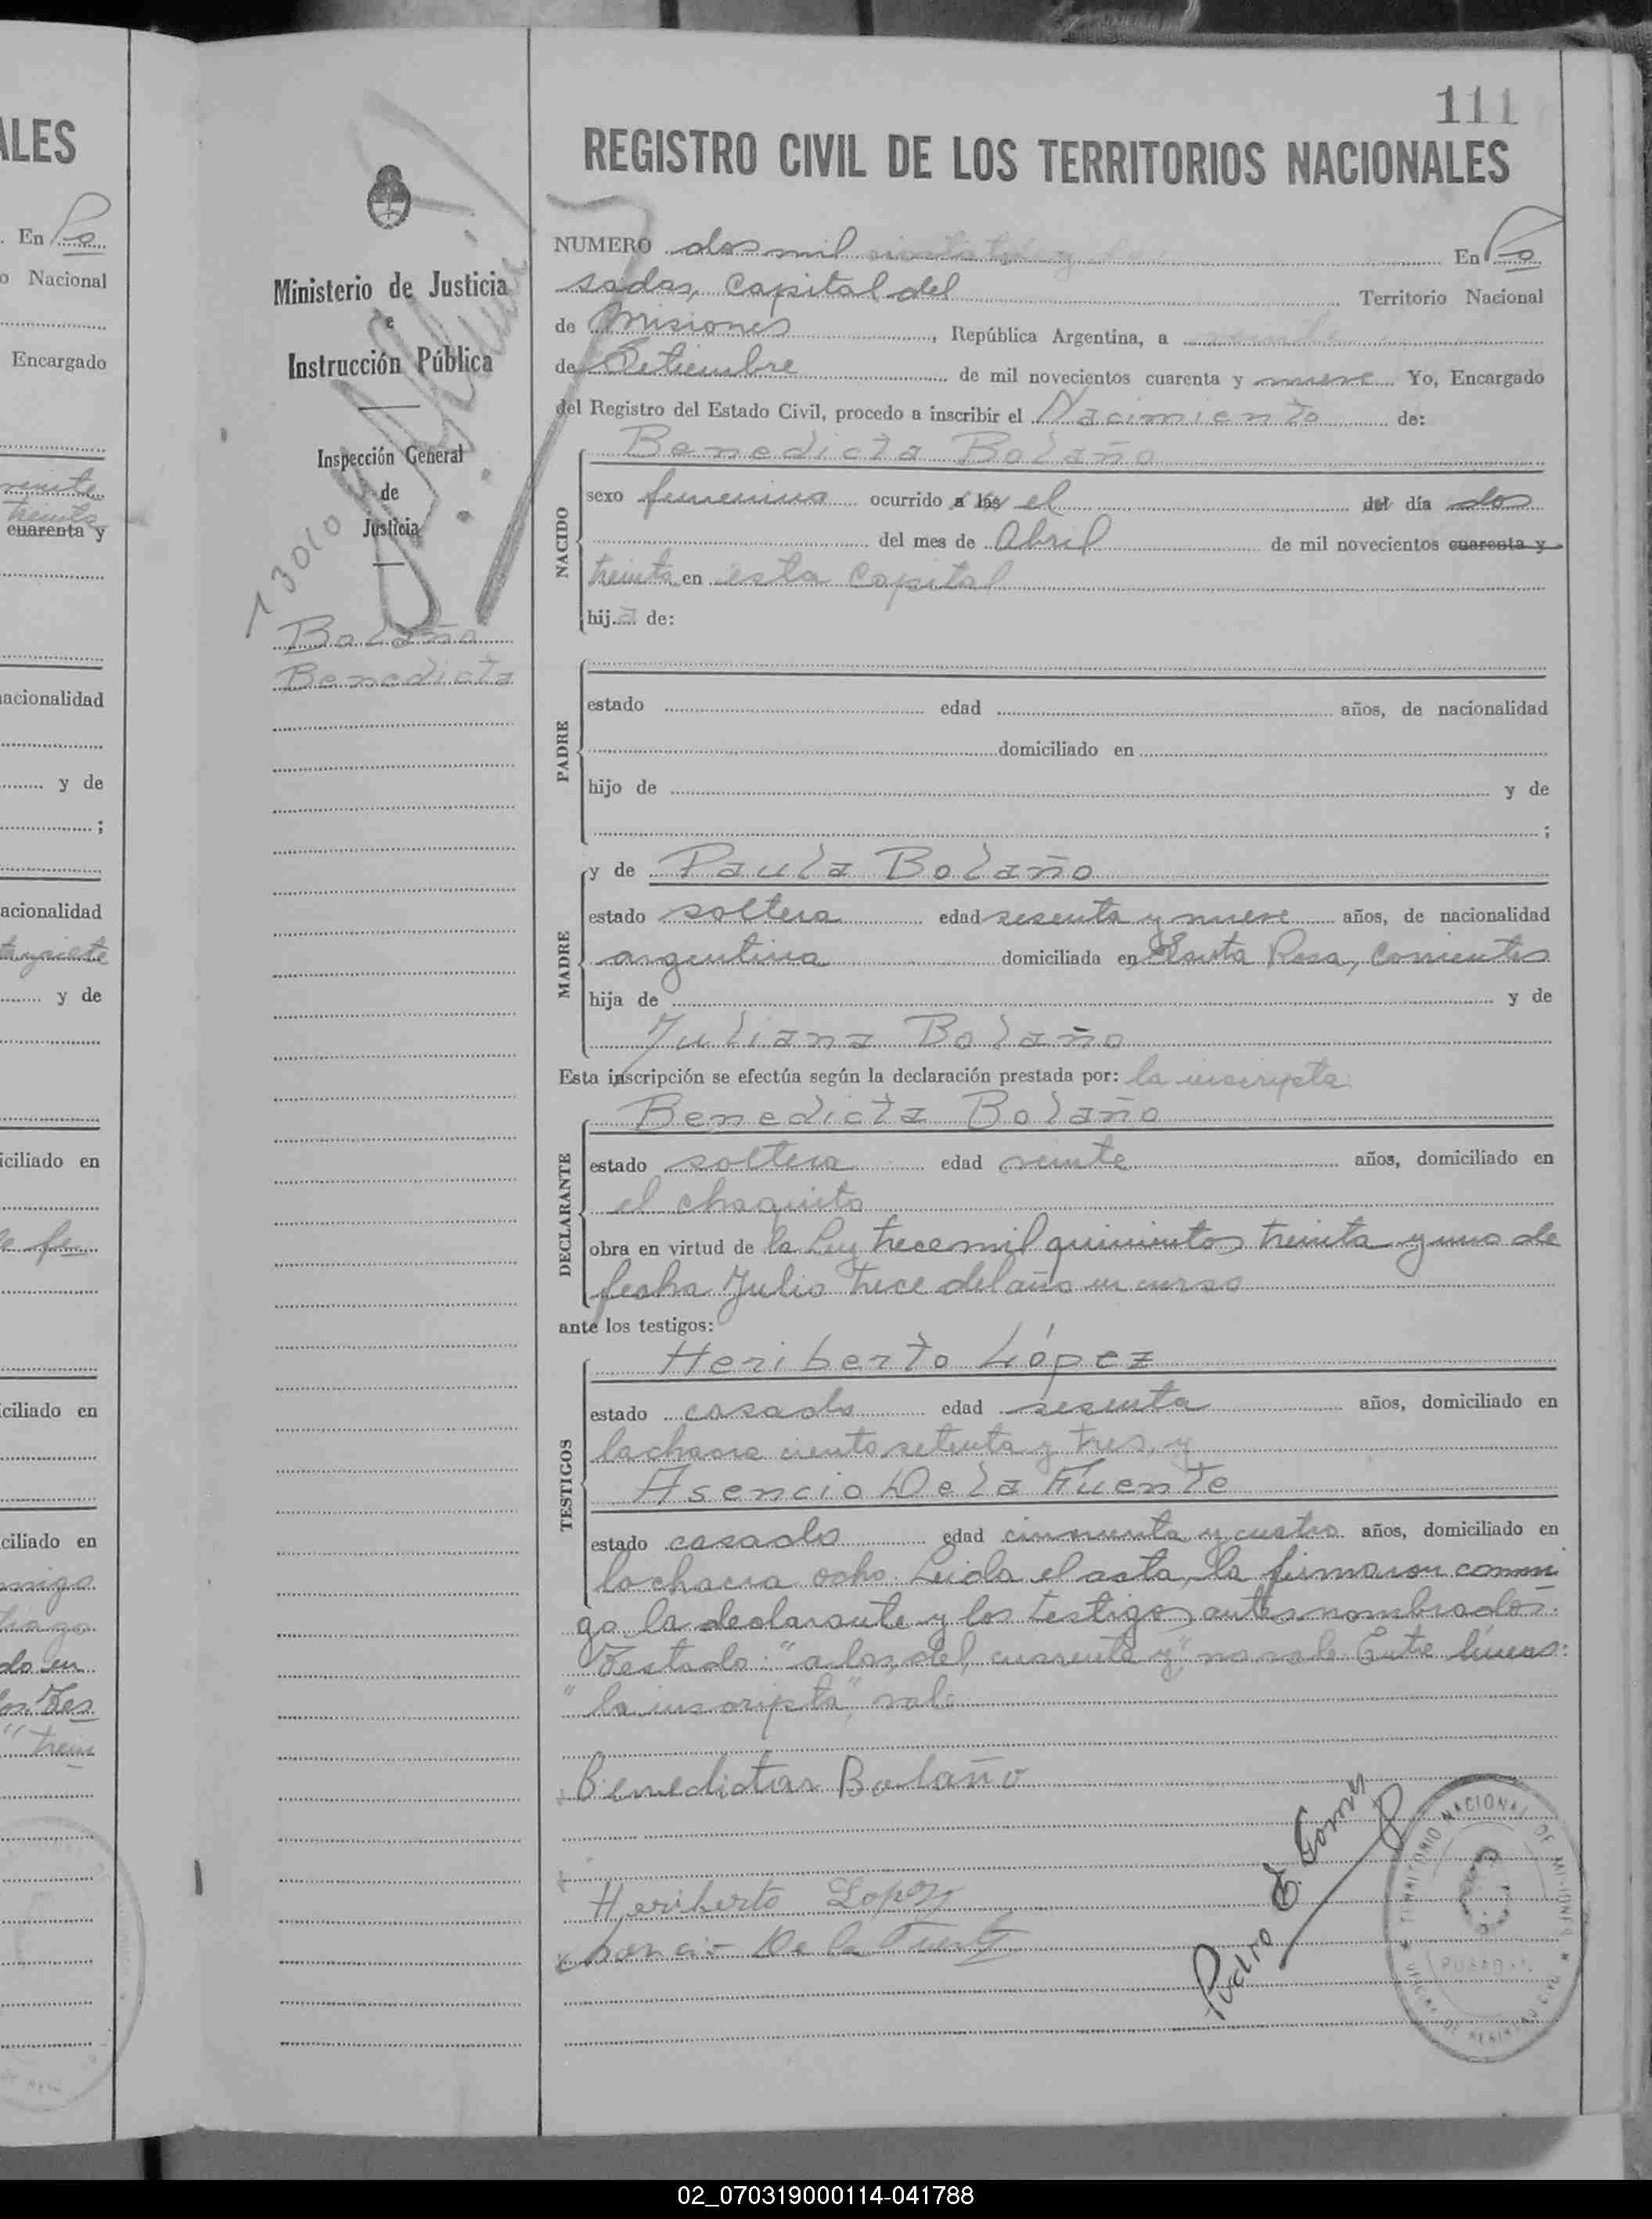 111
REGISTRO CIVIL DE LOS TERRITORIOS NACIONALES
NUMERO dos mil En Po
sadas, Capital del Territorio Nacional
de Misiones, República Argentina, a veinte
de Setiembre de mil novecientos cuarenta y nueve Yo, Encargado
del Registro del Estado Civil, procedo a inscribir el Nacimiento de:
Ministerio de Justicia
e
Instrucción Pública
Inspección General
de
Justicia
13010
Bolaño
Benedicta
NACIDO
Benedicta Bolaño
sexo femenino ocurrido a las el del día dos
del mes de Abril de mil novecientos cuarenta y
treinta en esta Capital
hija de:
PADRE
estado edad años, de nacionalidad
domiciliado en
hijo de y de
;
MADRE
y de Paula Bolaño
estado soltera edad sesenta y nueve años, de nacionalidad
argentina domiciliada en Santa Rosa, Corrientes
hija de y de
Juliana Bolaño
Esta inscripción se efectúa según la declaración prestada por: la inscripta
DECLARANTE
Benedicta Bolaño
estado soltera edad veinte años, domiciliado en
el chaquito
obra en virtud de la Ley trece mil quinientos treinta y uno de
fecha Julio trece del año en curso
ante los testigos:
TESTIGOS
Heriberto López
estado casado edad sesenta años, domiciliado en
la chacra ciento setenta y tres, y
Asencio De la Fuente
estado casado edad cincuenta y cuatro años, domiciliado en
la chacra ocho. Leida el acta, la firmaron conmi
go la declarante y los testigos antes nombrados.
Testado: "a las, del, cuarenta y", no vale Entre lineas:
"la inscripta", vale
Benedicta Bolaño
Heriberto Lopez
Asencio De la Fuente
Pedro E. Gomez
TERRITORIO NACIONAL DE MISIONES
POSADAS
OFICINA DE REGISTRO CIVIL
ALES
En Po
o Nacional
Encargado
veinte
treinta
cuarenta y
nacionalidad
y de
;
acionalidad
y de
iciliado en
ciliado en
ciliado en
migo
do en
los Tes
"trein
02_070319000114-041788